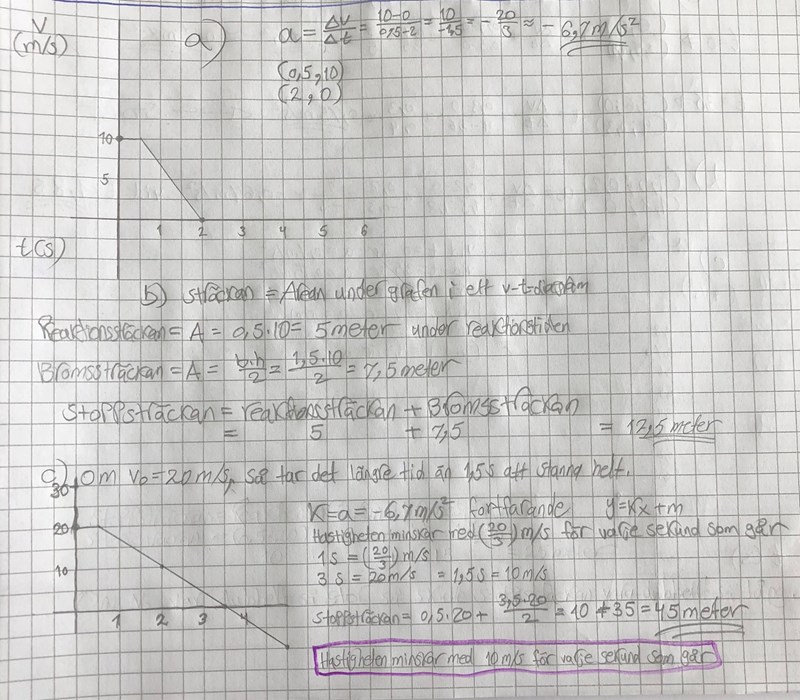 V
(m/s)
a) a = Δv/Δt = 10-0/0,5-2 = 10/-1,5 = -20/3 ≈ -6,7 m/s²
(0,5, 10)
(2, 0)
10
5
1 2 3 4 5 6
t(s)
b) Sträckan = Arean under grafen i ett v-t-diagram
Reaktionssträckan = A = 0,5·10 = 5 meter under reaktionstiden
Bromssträckan = A = b·h/2 = 1,5·10/2 = 7,5 meter
Stoppsträckan = reaktionssträckan + Bromssträckan
= 5 + 7,5 = 12,5 meter
c) Om v₀ = 20 m/s, så tar det längre tid än 1,5s att stanna helt.
30
20
10
1 2 3 4
K = a = -6,7 m/s² fortfarande y = kx + m
Hastigheten minskar med (20/3) m/s för varje sekund som går
1s = (20/3) m/s
3s = 20 m/s = 1,5s = 10 m/s
Stoppsträckan = 0,5·20 + 3,5·20/2 = 10 + 35 = 45 meter
Hastigheten minskar med 10 m/s för varje sekund som går